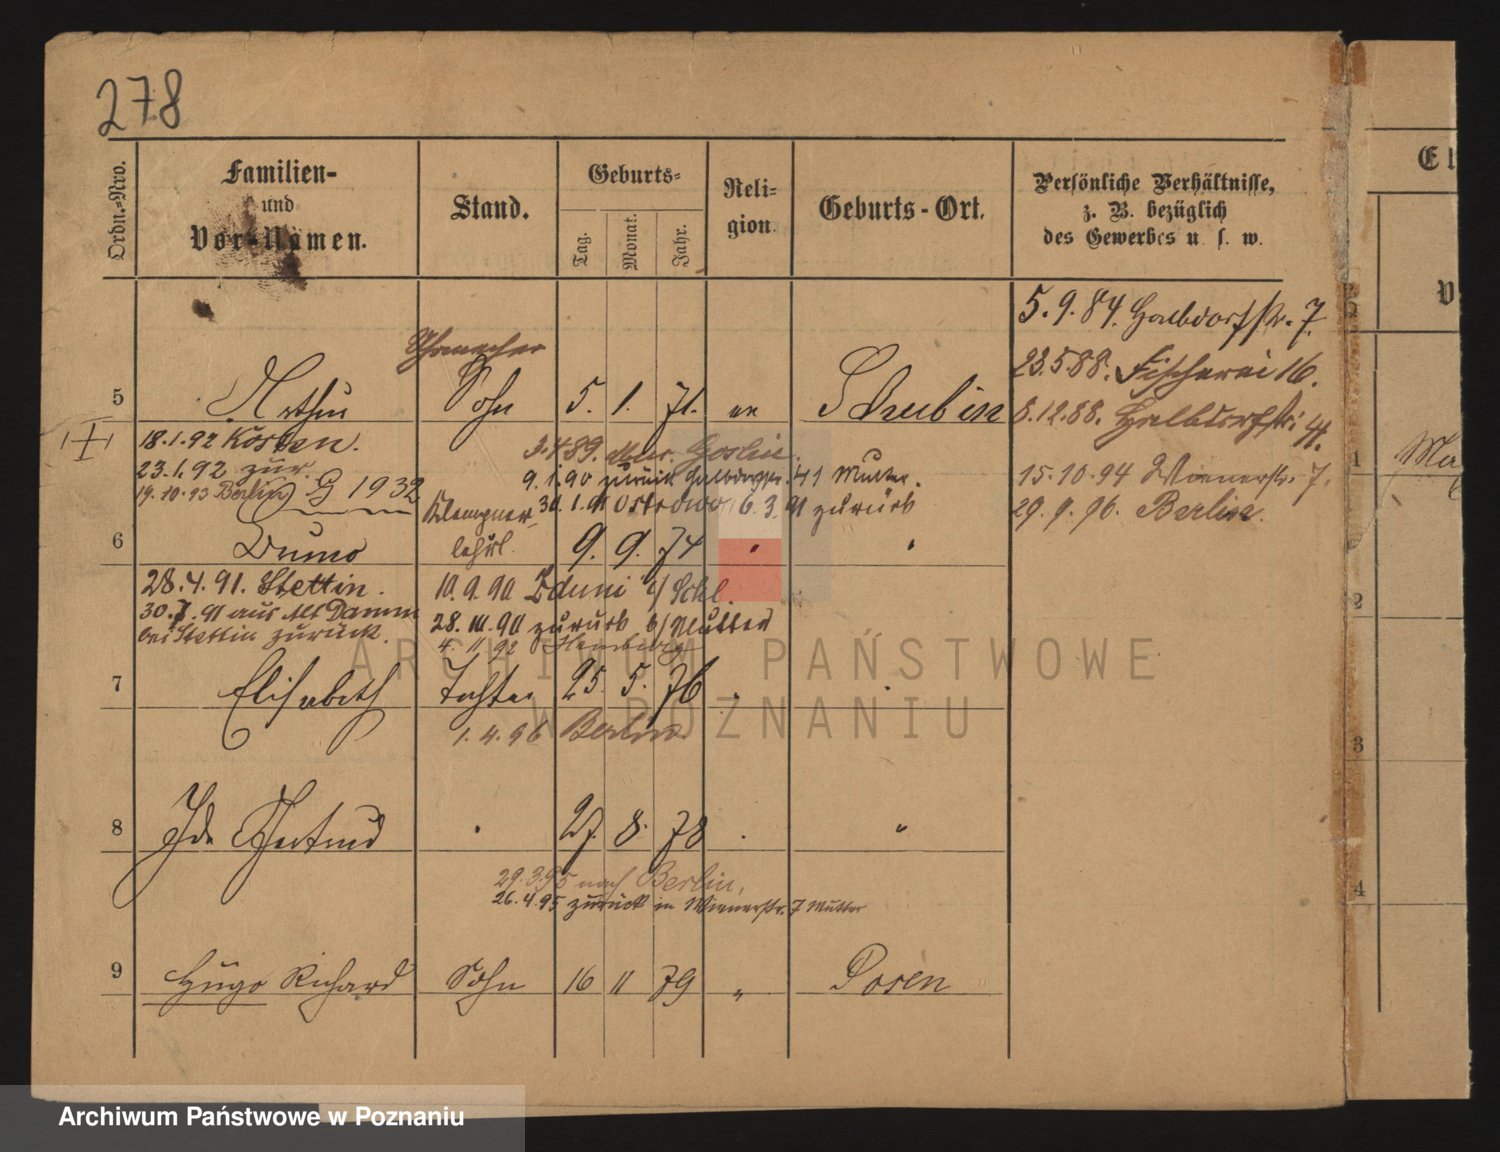 278
Ordn.-Nro.
Familien-
und
Vor-Namen.
Stand.
Geburts-
Tag.
Monat.
Jahr.
Reli-
gion
Geburts-Ort.
Persönliche Verhältnisse,
z. B. bezüglich
des Gewerbes u. s. w.
5.9.84. Halbdorfstr. 7.
23.5.88. Fischerei 16.
8.12.88. Halbdorfstr.
15.10.94 Wienerstr. 7.
Berlin.
Uhrmacher
5 Arthur Sohn 5. 1. 71. ev Schubin
18.1.92 Kosten.
23.1.92 zur.
19.10.93 Berlin G 1932
Goslin.
9.1.90 zurück Halbdorfstr. 41 Mutter.
30.1.91 Ostrowo 6.3.91 zurück
Klempner-
lehrl.
6 Bruno 9. 9. 74 " "
28.4.91. Stettin.
30. .91 aus Alt Damm
bei Stettin zurück.
10.9.90 Zduni
zurück b/ Mutter
4. 11 92
7 Elisabeth Tochter 25. 5. 76
1.4.96 Berlin.
8 Ida Gertrud " 27. 8. 78 " "
29.3.95 nach Berlin,
26.4.95 zurück in Wienerstr. 7 Mutter
9 Hugo Richard Sohn 16 11 79 " Posen
E
V
1
2
3
4
Ma
ARCHIWUM PAŃSTWOWE
W POZNANIU
Archiwum Państwowe w Poznaniu